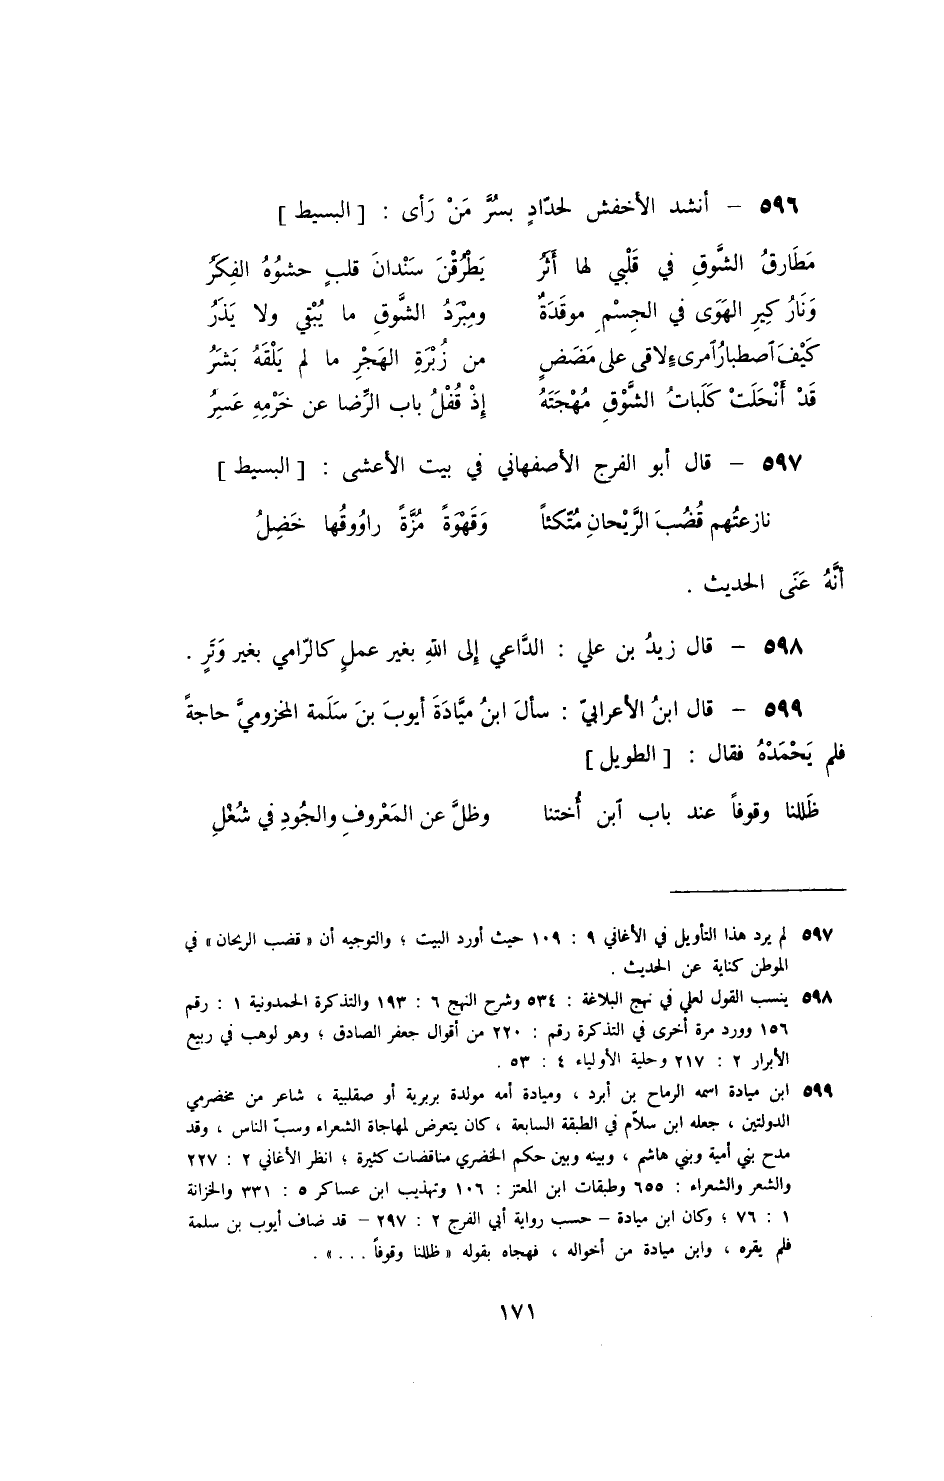 ٥٩٦ – أنشد الأخفش لحدّادٍ بسُرَّ مَنْ رَأى : [ البسيط ]
مَطَارقُ الشَّوقِ في قَلْبي لها أَثَرُ يَطْرُقْنَ سَنْدانَ قلبٍ حشوُهُ الفِكَرُ
وَنَارُ كِيرِ الهَوَى في الجِسْمِ موقَدَةٌ ومِبْرَدُ الشَّوقِ ما يُبْقي ولا يَذَرُ
كَيْفَ ٱصطبارُ ٱمرىءٍ لاقى على مَضَضٍ من زُبْرَةِ الهَجْرِ ما لم يَلْقَهُ بَشَرُ
قَدْ أَنْحَلَتْ كَلَباتُ الشَّوْقِ مُهْجَتَهُ إذْ قُفْلُ باب الرِّضا عن خَرْمِهِ عَسِرُ
٥٩٧ – قال أبو الفرج الأصفهاني في بيت الأعشى : [ البسيط ]
نازعتُهم قُضُبَ الرَّيْحانِ مُتّكئاً وَقَهْوَةً مُزَّةً راوُوقُها خَضِلُ
أنَّهُ عَنَى الحديث .
٥٩٨ – قال زيدُ بن علي : الدَّاعي إلى اللهِ بغير عملٍ كالرّامي بغير وَتَرٍ .
٥٩٩ – قال ابنُ الأعرابيّ : سألَ ابنُ ميَّادَةَ أيوبَ بنَ سَلَمة المخزوميَّ حاجةً
فلم يَحْمَدْهُ فقال : [ الطويل ]
ظَللنا وقوفاً عند باب ٱبن أُختنا وظلَّ عن المَعْروفِ والجُودِ في شُغْلِ
٥٩٧ لم يرد هذا التأويل في الأغاني ٩ : ١٠٩ حيث أورد البيت ؛ والتوجيه أن « قضب الريحان » في
الموطن كناية عن الحديث .
٥٩٨ ينسب القول لعلي في نهج البلاغة : ٥٣٤ وشرح النهج ٦ : ١٩٣ والتذكرة الحمدونية ١ : رقم
١٥٦ وورد مرة أخرى في التذكرة رقم : ٢٢٠ من أقوال جعفر الصادق ؛ وهو لوهب في ربيع
الأبرار ٢ : ٢١٧ وحلية الأولياء ٤ : ٥٣ .
٥٩٩ ابن ميادة اسمه الرماح بن أبرد ، وميادة أمه مولدة بربرية أو صقلبية ، شاعر من مخضرمي
الدولتين ، جعله ابن سلاّم في الطبقة السابعة ، كان يتعرض لمهاجاة الشعراء وسبّ الناس ، وقد
مدح بني أمية وبني هاشم ، وبينه وبين حكم الخضري مناقضات كثيرة ؛ انظر الأغاني ٢ : ٢٢٧
والشعر والشعراء : ٦٥٥ وطبقات ابن المعتز : ١٠٦ وتهذيب ابن عساكر ٥ : ٣٣١ والخزانة
١ : ٧٦ ؛ وكان ابن ميادة – حسب رواية أبي الفرج ٢ : ٢٩٧ – قد ضاف أيوب بن سلمة
فلم يقره ، وابن ميادة من أخواله ، فهجاه بقوله « ظللنا وقوفاً . . . » .
١٧١